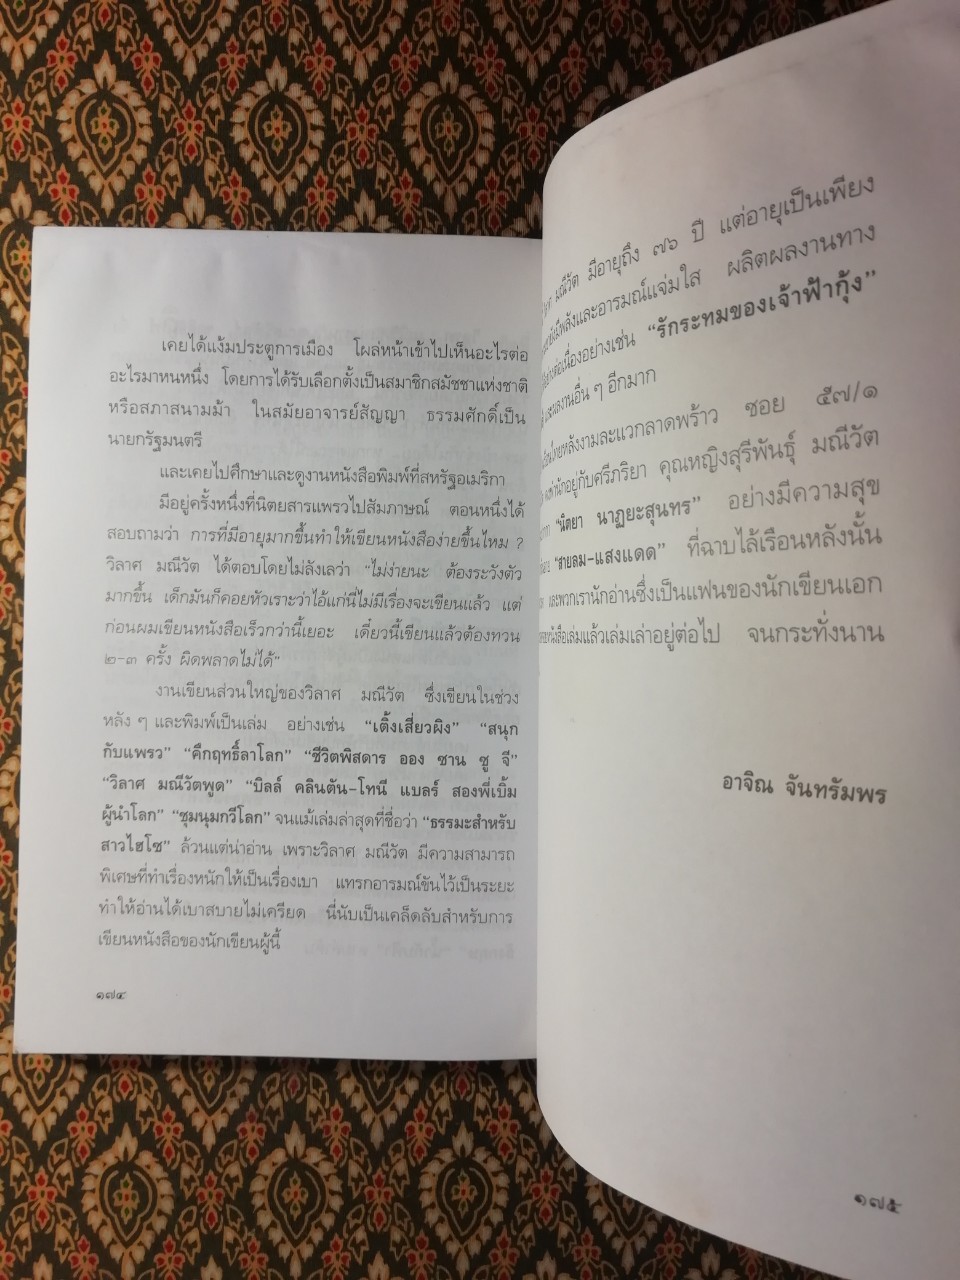 เคยได้แง้มประตูการเมือง โผล่หน้าเข้าไปเห็นอะไรต่อ
อะไรมาหนหนึ่ง โดยการได้รับเลือกตั้งเป็นสมาชิกสมัชชาแห่งชาติ
หรือสภาสนามม้า ในสมัยอาจารย์สัญญา ธรรมศักดิ์เป็น
นายกรัฐมนตรี
และเคยไปศึกษาและดูงานหนังสือพิมพ์ที่สหรัฐอเมริกา
มีอยู่ครั้งหนึ่งที่นิตยสารแพรวไปสัมภาษณ์ ตอนหนึ่งได้
สอบถามว่า การที่มีอายุมากขึ้นทำให้เขียนหนังสือง่ายขึ้นไหม ?
วิลาศ มณีวัต ได้ตอบโดยไม่ลังเลว่า "ไม่ง่ายนะ ต้องระวังตัว
มากขึ้น เด็กมันก็คอยหัวเราะว่าไอ้แก่นี่ไม่มีเรื่องจะเขียนแล้ว แต่
ก่อนผมเขียนหนังสือเร็วกว่านี้เยอะ เดี๋ยวนี้เขียนแล้วต้องทวน
๒-๓ ครั้ง ผิดพลาดไม่ได้"
งานเขียนส่วนใหญ่ของวิลาศ มณีวัต ซึ่งเขียนในช่วง
หลัง ๆ และพิมพ์เป็นเล่ม อย่างเช่น "เติ้งเสี่ยวผิง" "สนุก
กับแพรว" "คึกฤทธิ์ลาโลก" "ชีวิตพิสดาร ออง ซาน ซู จี"
"วิลาศ มณีวัตพูด" "บิลล์ คลินตัน-โทนี แบลร์ สองพี่เบิ้ม
ผู้นำโลก" "ชุมนุมกวีโลก" จนแม้เล่มล่าสุดที่ชื่อว่า "ธรรมะสำหรับ
สาวไฮโซ" ล้วนแต่น่าอ่าน เพราะวิลาศ มณีวัต มีความสามารถ
พิเศษที่ทำเรื่องหนักให้เป็นเรื่องเบา แทรกอารมณ์ขันไว้เป็นระยะ
ทำให้อ่านได้เบาสบายไม่เครียด นี่นับเป็นเคล็ดลับสำหรับการ
เขียนหนังสือของนักเขียนผู้นี้
๑๗๔
มณีวัต มีอายุถึง ๗๖ ปี แต่อายุเป็นเพียง
ยังมีพลังและอารมณ์แจ่มใส ผลิตผลงานทาง
อย่างต่อเนื่องอย่างเช่น "รักระทมของเจ้าฟ้ากุ้ง"
และงานอื่น ๆ อีกมาก
หลังงามละแวกลาดพร้าว ซอย ๕๗/๑
พำนักอยู่กับศรีภริยา คุณหญิงสุรีพันธุ์ มณีวัต
"นิตยา นาฏยะสุนทร" อย่างมีความสุข
"สายลม-แสงแดด" ที่ฉาบไล้เรือนหลังนั้น
และพวกเรานักอ่านซึ่งเป็นแฟนของนักเขียนเอก
หนังสือเล่มแล้วเล่มเล่าอยู่ต่อไป จนกระทั่งนาน
อาจิณ จันทรัมพร
๑๗๕